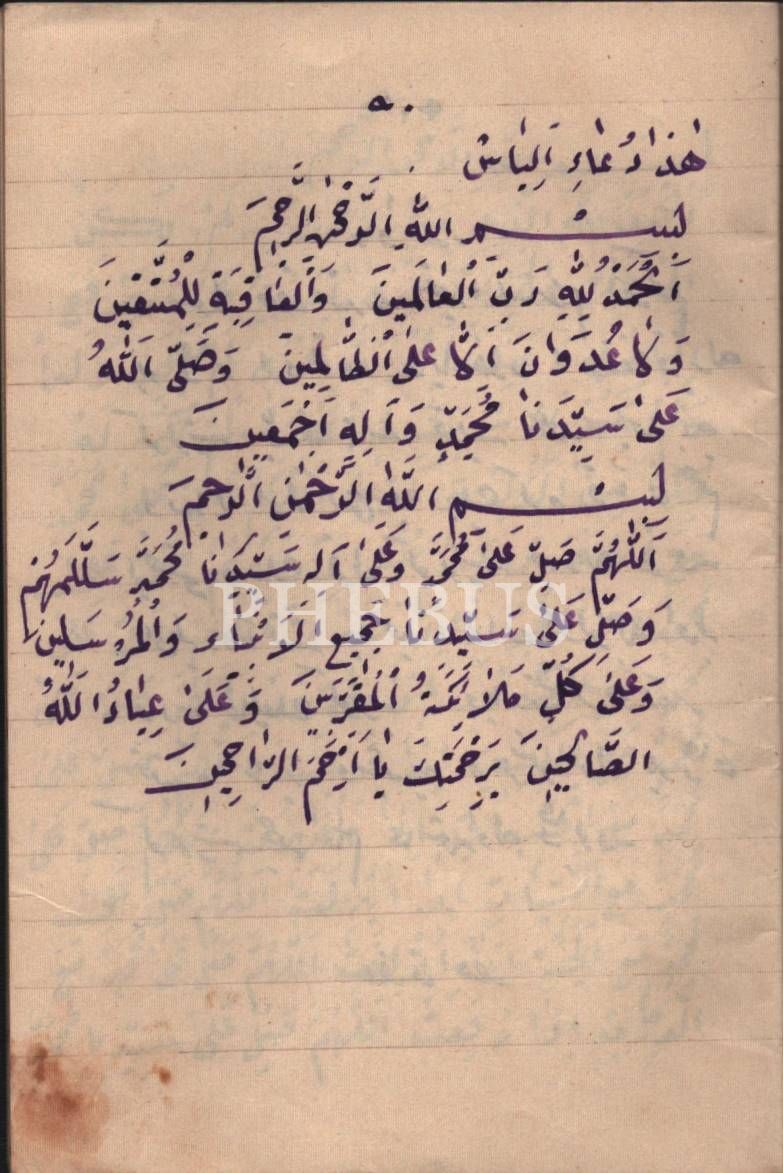 ٥٠
هٰذَا دُعٰاءِ اَلِيٰاسْ
بِسْمِ اللهِ الرَّحْمٰنِ الرَّحِيمَ
اَلْحَمْدُ لِلّٰهِ رَبِّ اَلْعٰالَمِينَ وَاَلْعٰاقِبَةَ لِلْمُتَّقِينَ
وَلٰا عُدْوٰانَ اَلّٰا عَلٰى اَلْظّٰالِمِينَ وَصَلَّى اَللهُ
عَلٰى سَيِّدَنٰا مُحَمَّدٍ وَآلِهِ اَجْمَعِينَ
بِسْمِ اللهِ الرَّحْمٰنِ الرَّحِيمَ
اَللّٰهُمَّ صَلِّ عَلٰى مُحَمَّدٍ وَعَلٰى آلِ سَيِّدَنٰا مُحَمَّدٍ
وَصَلِّ عَلٰى سَيِّدَنٰا جَمِيعِ اَلاَنْبِيٰاءِ وَالْمُرْسَلِينَ
وَعَلٰى كُلِّ مَلٰائِكَةُ اَلْمُقَرَّبِينَ وَعَلٰى عِبٰادُ اللهُ
الصَّالِحِينَ بِرَحْمَتِكَ يٰا اَرْحَمَ الرّٰاحِمِينَ
PHEBUS